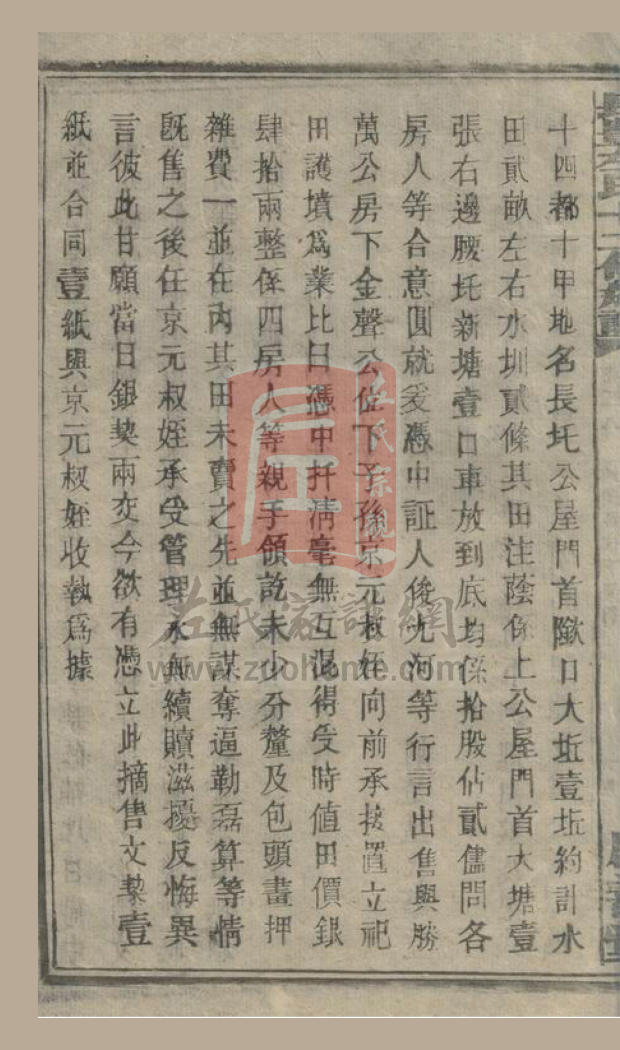 十四都十甲地名長圫公屋門首歘口大坵壹坵約計水
田貳畝左右水圳貳條其田注蔭係上公屋門首大塘壹
張右邊腰圫新塘壹口車放到底均係拾股佔貳儘問各
房人等合意圓就爰憑中証人後光河等行言出售與勝
萬公房下金聲公位下子孫京元叔姪向前承接置立祀
田護墳爲業比日憑中扦清毫無互混得受時值田價銀
肆拾兩整係四房人等親手領訖未少分釐及包頭畫押
雜費一並在內其田未賣之先並無謀奪逼勒磊算等情
旣售之後任京元叔姪承受管理永無續贖滋擾反悔異
言彼此甘願當日銀契兩交今欲有憑立此摘售文契壹
紙並合同壹紙與京元叔姪收執爲據
左氏宗親
左氏家譜網
www.zuohome.com